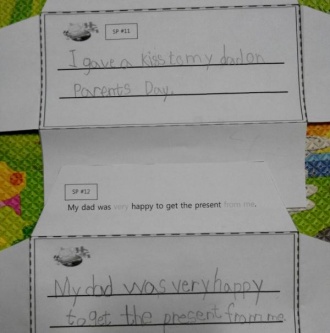 SP #11
I gave a kiss to my dad on
Parents Day.
SP #12
My dad was very happy to get the present from me.
My dad was very happy
to get the present from me.